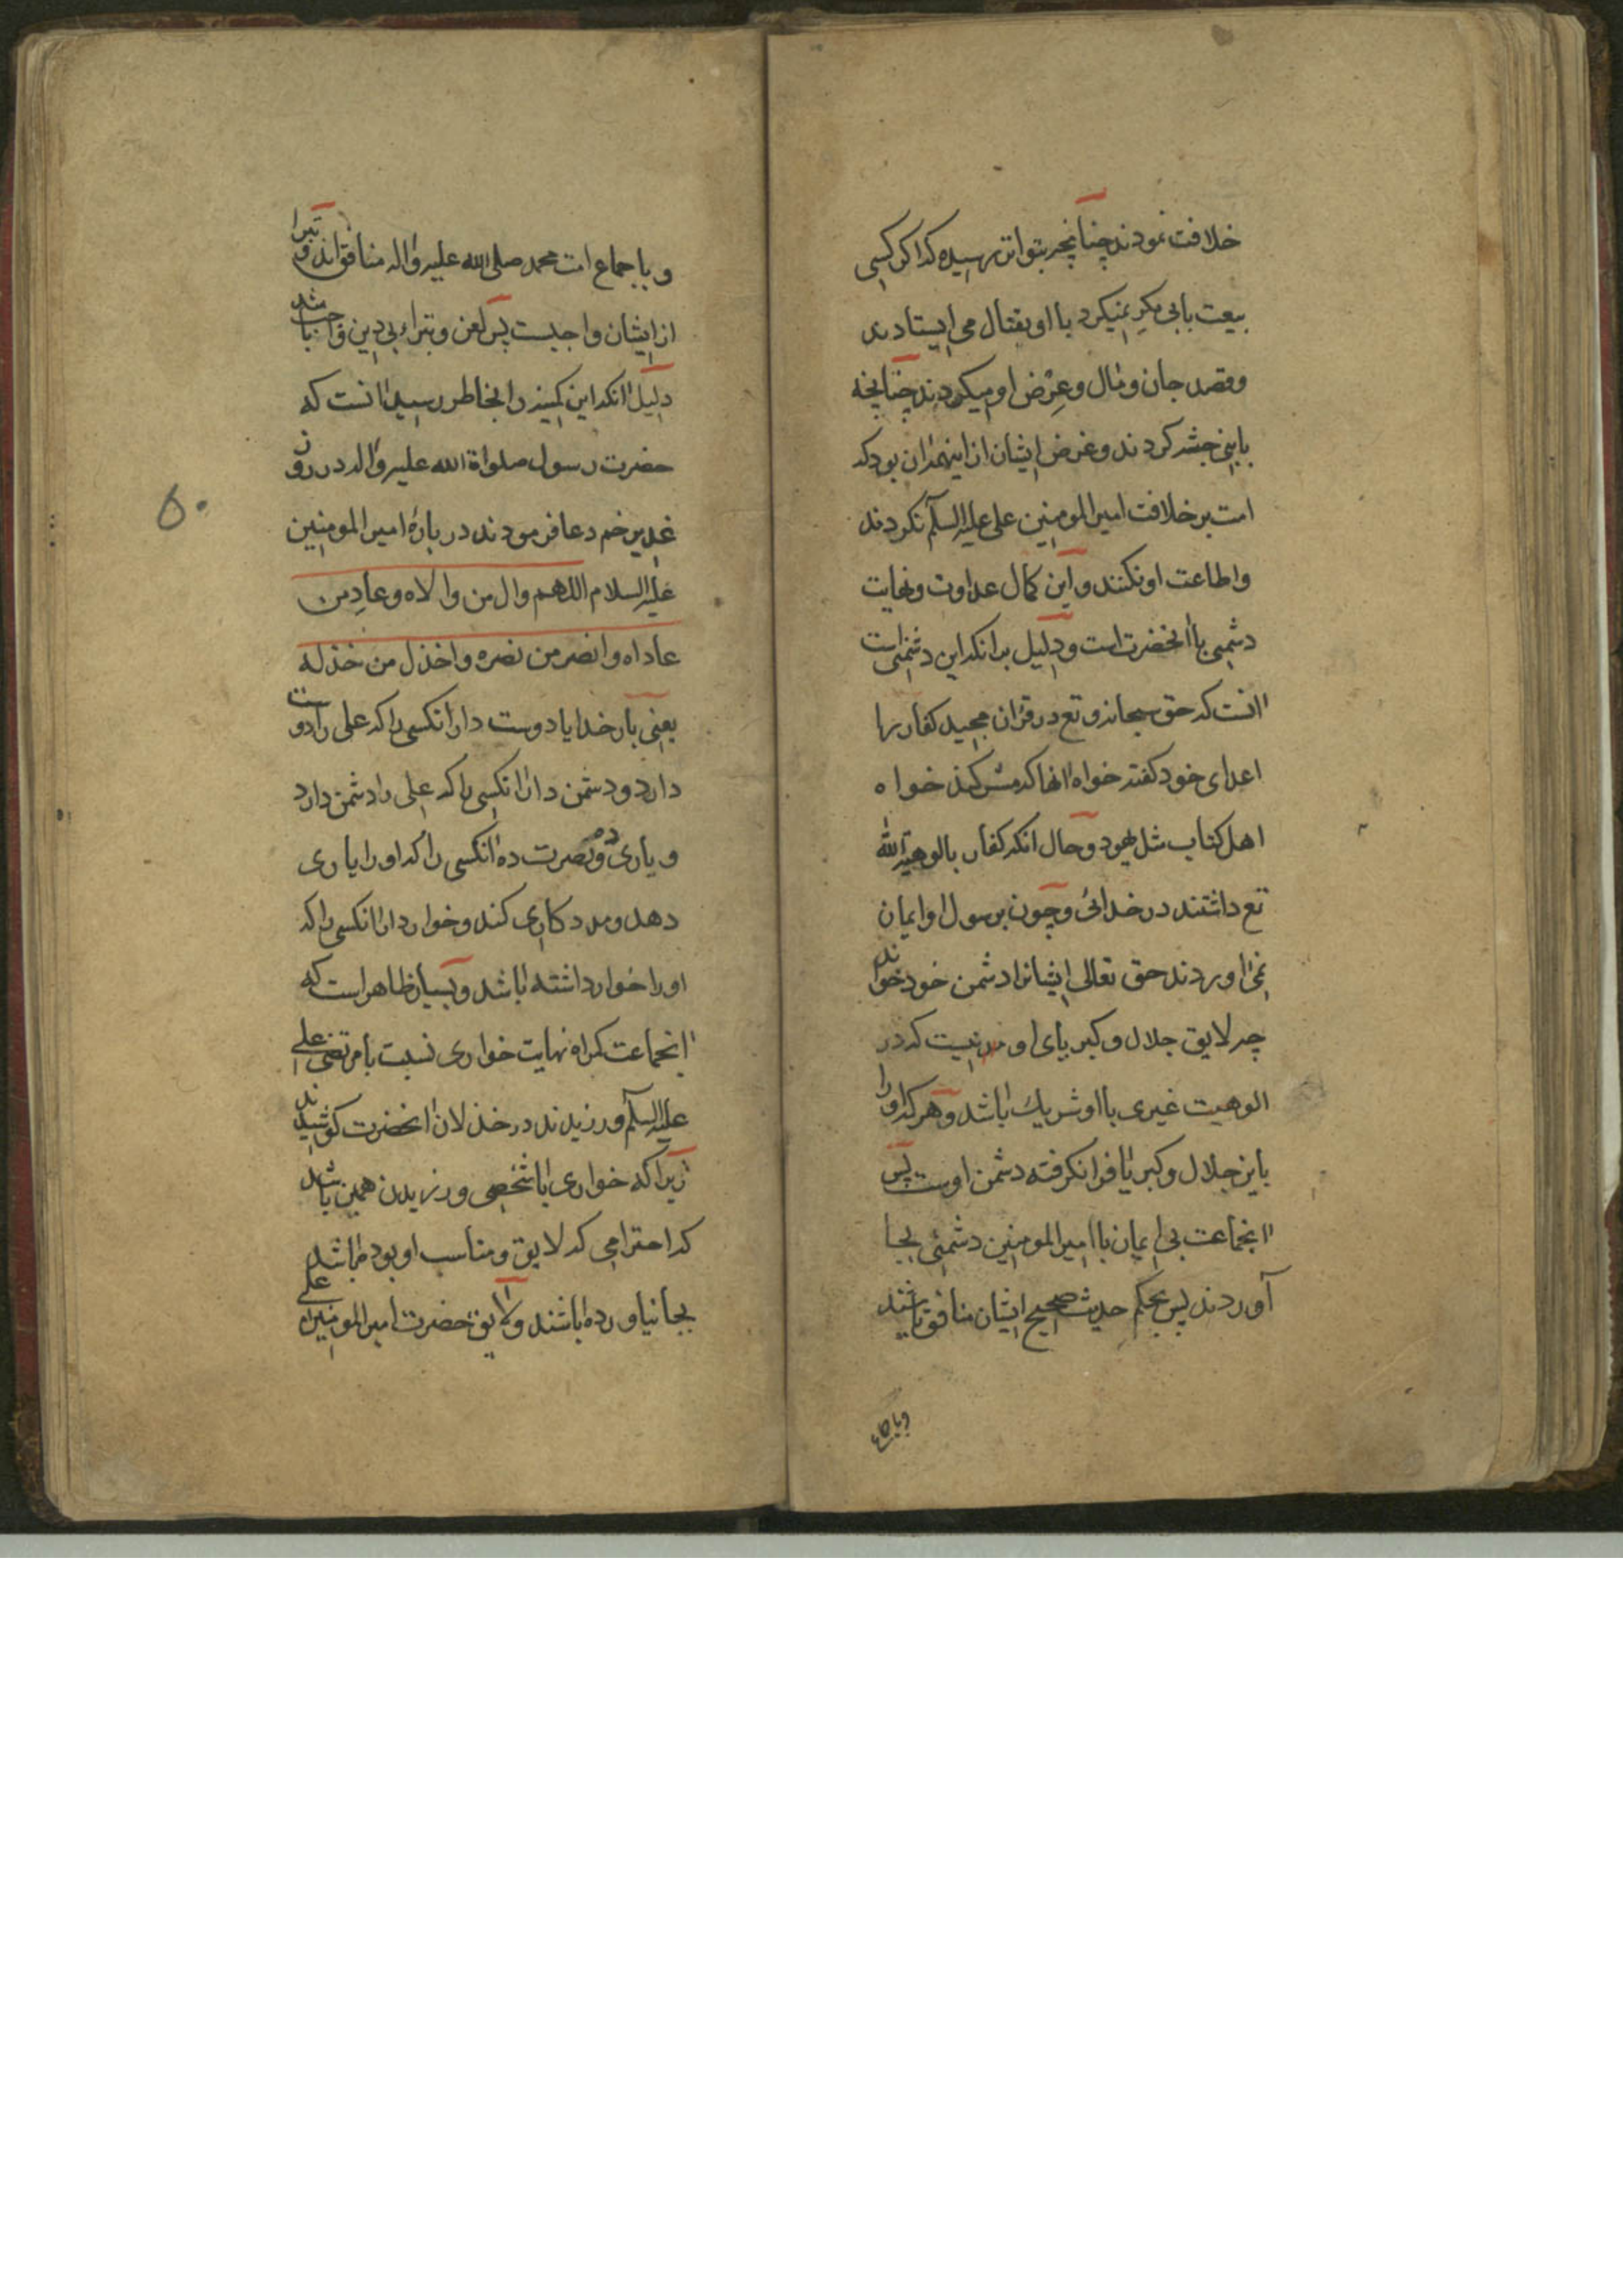 خلافت نمودند چنانچه بتواتر رسیده که اکر کسی
بیعت بابی بکر نمیکرد با او بقتال می ایستادند
وقصد جان ومال وعرض او میکردند چنانچه
بابنی کردند وغرض ایشان از اینهمه ان بود که
امت بر خلافت امیر المومنین علی علیه السلم نکردند
واطاعت او نکنند واین کمال عداوت ونهایت
دشمنی با انحضرت است ودلیل بر انکه این دشمنی است
انست که حق سبحانه وتع در قران مجید کفار را
اعدای خود کفته خواه انها که مشرکند خواه
اهل کتاب مثل یهود وحال انکه کفار بالوهیة الله
تع داشتند در خدائی وچون برسول او ایمان
نمی اوردند حق تعالی ایشانرا دشمن خود خواند
چه لایق جلال وکبریای او نیست که در
الوهیت غیری با او شریک باشد وهر که او را
باین جلال وکبریا فرا نکرفته دشمن اوست پس
انجماعت بی ایمان با امیر المومنین دشمنی بجا
آوردند پس بحکم حدیث صحیح ایشان منافق باشند
وباجماع
وباجماع امت محمد صلی الله علیه واله منافق اند و تبرا
از ایشان واجبست پس لعن وتبراء بی دین واجب باشد
دلیل انکه این کمینه را بخاطر رسید انست که
حضرت رسول صلواة الله علیه واله در روز
غدیر خم دعا فرمودند در بارهٔ امیر المومنین
علیه السلام اللهم وال من والاه وعاد من
عاداه وانصر من نصره واخذل من خذله
یعنی بار خدایا دوست دار انکسی را که علی را دوست
دارد ودشمن دار انکسی را که علی را دشمن دارد
ویاری ده ونصرت ده انکسی را که او را یاری
دهد ومددکاری کند وخوار دار انکسی را که
او را خوار داشته باشد وبسیار ظاهر است که
انجماعت کمراه نهایت خواری نسبت بامرتضی علی
علیه السلم ورزیدند در خذلان انحضرت کوشیدند
زیرا که خواری با شخصی ورزیدن همین باشد
که احترامی که لایق ومناسب او بود باشد
بجا نیاورده باشند ولایق حضرت امیر المومنین علی
۵۰